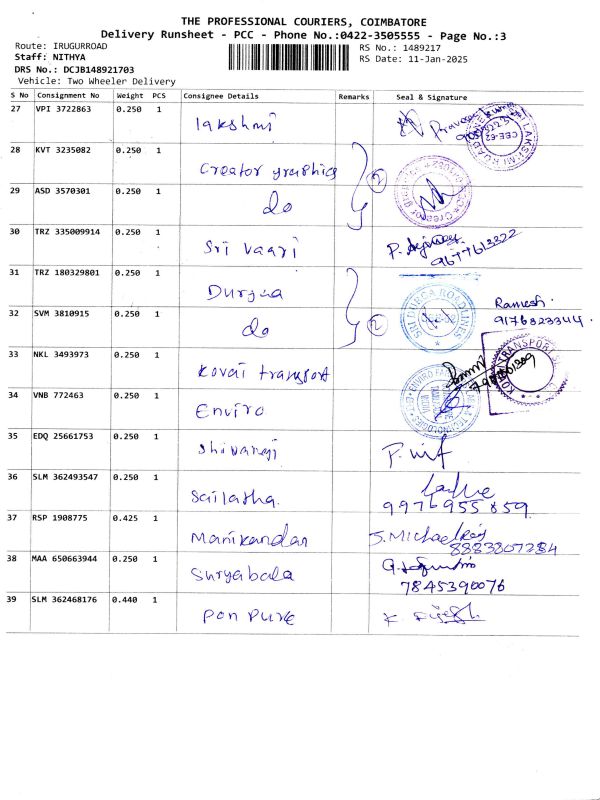 THE PROFESSIONAL COURIERS, COIMBATORE
Delivery Runsheet - PCC - Phone No.:0422-3505555 - Page No.:3
Route: IRUGURROAD RS No.: 1489217
Staff: NITHYA RS Date: 11-Jan-2025
DRS No.: DCJB148921703
Vehicle: Two Wheeler Delivery
S No Consignment No Weight PCS Consignee Details Remarks Seal & Signature
27 VPI 3722863 0.250 1 lakshmi
28 KVT 3235082 0.250 1 Creator graphics 2
29 ASD 3570301 0.250 1 do
30 TRZ 335009914 0.250 1 Sri Vaari 9677613322
31 TRZ 180329801 0.250 1 Durgaa
SRI DURGA ROADLINES
Ramesh.
32 SVM 3810915 0.250 1 do 2 9176323344.
33 NKL 3493973 0.250 1 Kovai transport
34 VNB 772463 0.250 1 Enviro
35 EDQ 25661753 0.250 1 Shivangi
36 SLM 362493547 0.250 1 Sailatha. 9976955859
37 RSP 1908775 0.425 1 Manikandan 8883807284
38 MAA 650663944 0.250 1 Suryabala 7845390076
39 SLM 362468176 0.440 1 Pon pure